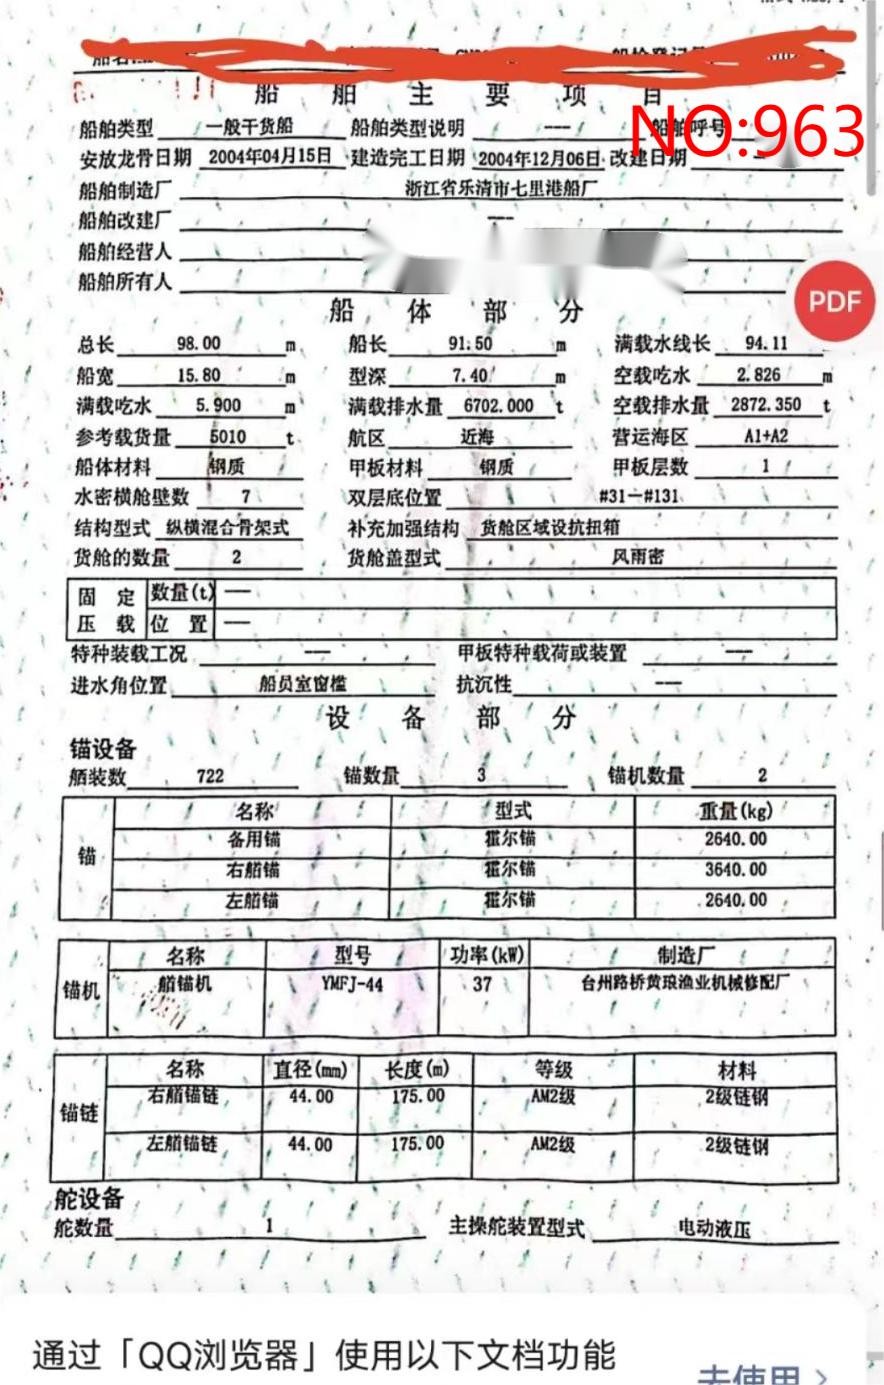 船舶主要项目
NO:963
船舶类型 一般干货船 船舶类型说明 --- 船舶呼号
安放龙骨日期 2004年04月15日 建造完工日期 2004年12月06日 改建日期
船舶制造厂 浙江省乐清市七里港船厂
船舶改建厂 ---
船舶经营人
船舶所有人
PDF
船体部分
总长 98.00 m 船长 91.50 m 满载水线长 94.11
船宽 15.80 m 型深 7.40 m 空载吃水 2.826 m
满载吃水 5.900 m 满载排水量 6702.000 t 空载排水量 2872.350 t
参考载货量 5010 t 航区 近海 营运海区 A1+A2
船体材料 钢质 甲板材料 钢质 甲板层数 1
水密横舱壁数 7 双层底位置 #31—#131
结构型式 纵横混合骨架式 补充加强结构 货舱区域设抗扭箱
货舱的数量 2 货舱盖型式 风雨密
固定 数量(t) ---
压载 位置 ---
特种装载工况 --- 甲板特种载荷或装置 ---
进水角位置 船员室窗槛 抗沉性 ---
设备部分
锚设备
舾装数 722 锚数量 3 锚机数量 2
锚
名称 型式 重量(kg)
备用锚 霍尔锚 2640.00
右艏锚 霍尔锚 3640.00
左艏锚 霍尔锚 2640.00
锚机
名称 型号 功率(kW) 制造厂
艏锚机 YMFJ-44 37 台州路桥黄琅渔业机械修配厂
锚链
名称 直径(mm) 长度(m) 等级 材料
右艏锚链 44.00 175.00 AM2级 2级链钢
左艏锚链 44.00 175.00 AM2级 2级链钢
舵设备
舵数量 1 主操舵装置型式 电动液压
通过「QQ浏览器」使用以下文档功能
去使用 >